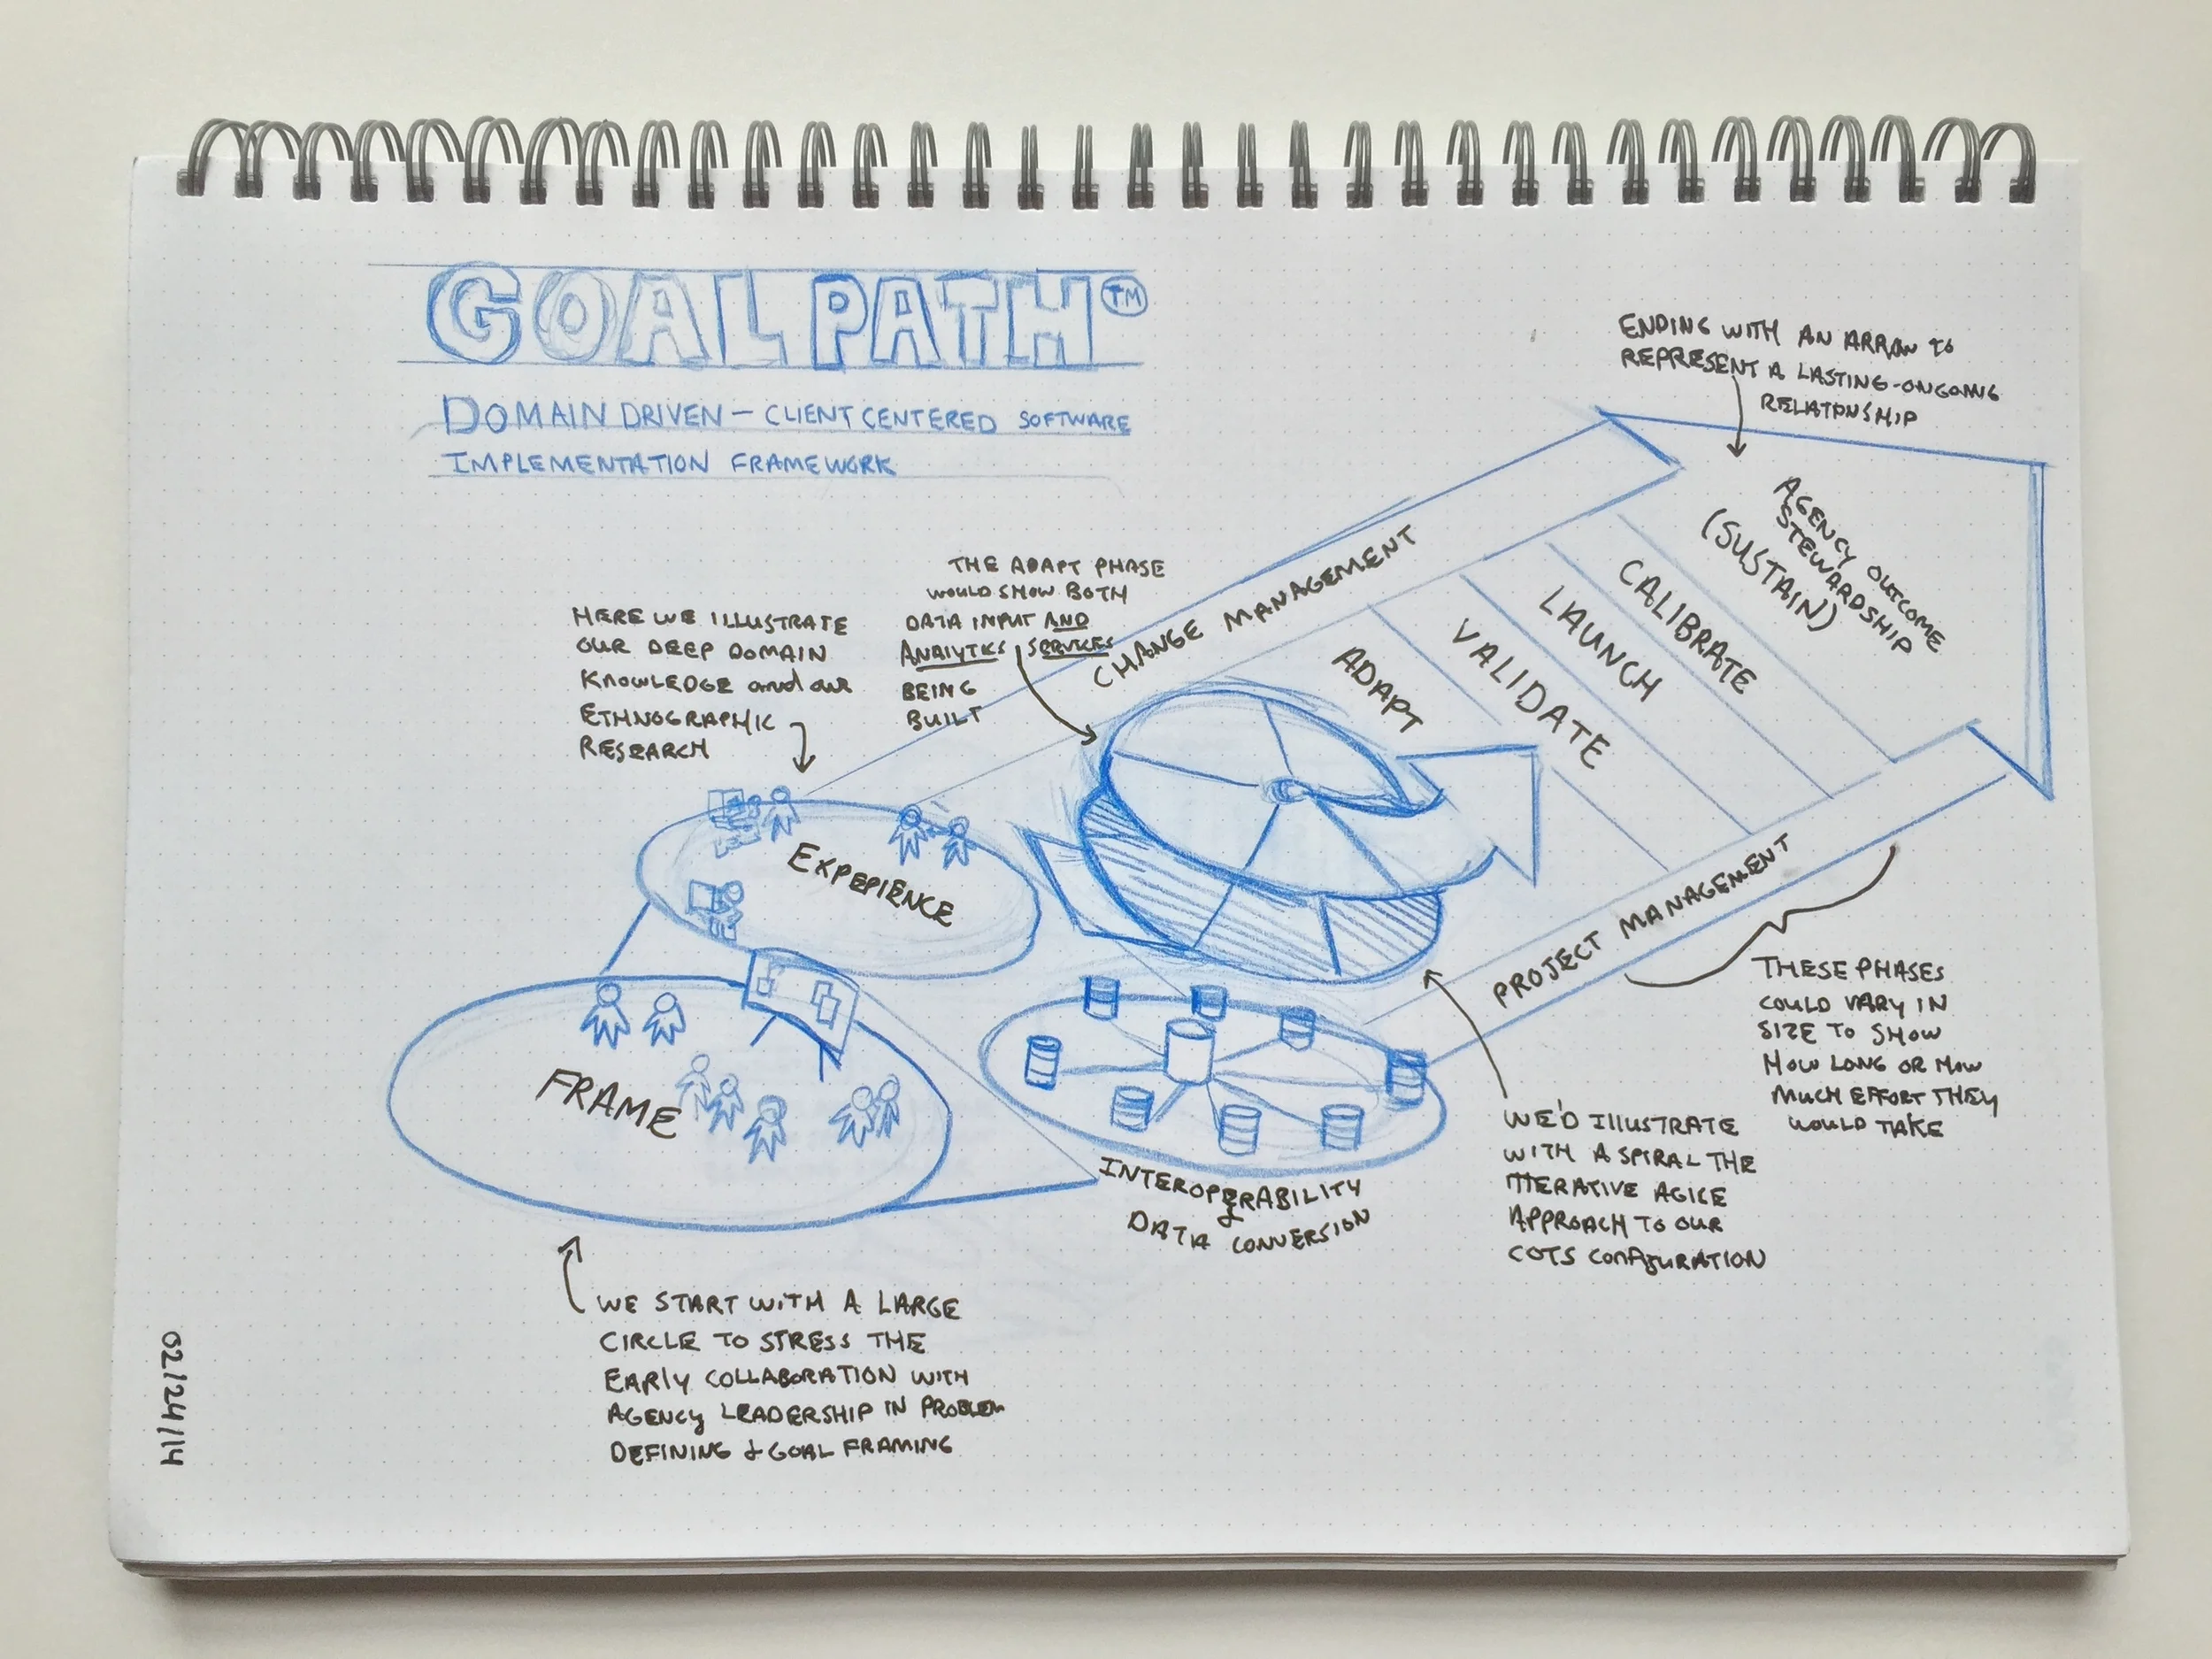 GOAL PATH TM
DOMAIN DRIVEN – CLIENT CENTERED SOFTWARE
IMPLEMENTATION FRAMEWORK
ENDING WITH AN ARROW TO
REPRESENT A LASTING-ONGOING
RELATIONSHIP
THE ADAPT PHASE
WOULD SHOW BOTH
DATA INPUT AND
ANALYTICS SERVICES
BEING
BUILT
HERE WE ILLUSTRATE
OUR DEEP DOMAIN
KNOWLEDGE and our
ETHNOGRAPHIC
RESEARCH
CHANGE MANAGEMENT
ADAPT
VALIDATE
LAUNCH
CALIBRATE
AGENCY OUTCOME
STEWARDSHIP
(SUSTAIN)
PROJECT MANAGEMENT
EXPERIENCE
FRAME
INTEROPERABILITY
&
DATA CONVERSION
THESE PHASES
COULD VARY IN
SIZE TO SHOW
HOW LONG OR HOW
MUCH EFFORT THEY
WOULD TAKE
WE'D ILLUSTRATE
WITH A SPIRAL THE
ITERATIVE AGILE
APPROACH TO OUR
COTS CONFIGURATION
WE START WITH A LARGE
CIRCLE TO STRESS THE
EARLY COLLABORATION WITH
AGENCY LEADERSHIP IN PROBLEM
DEFINING & GOAL FRAMING
02/24/14